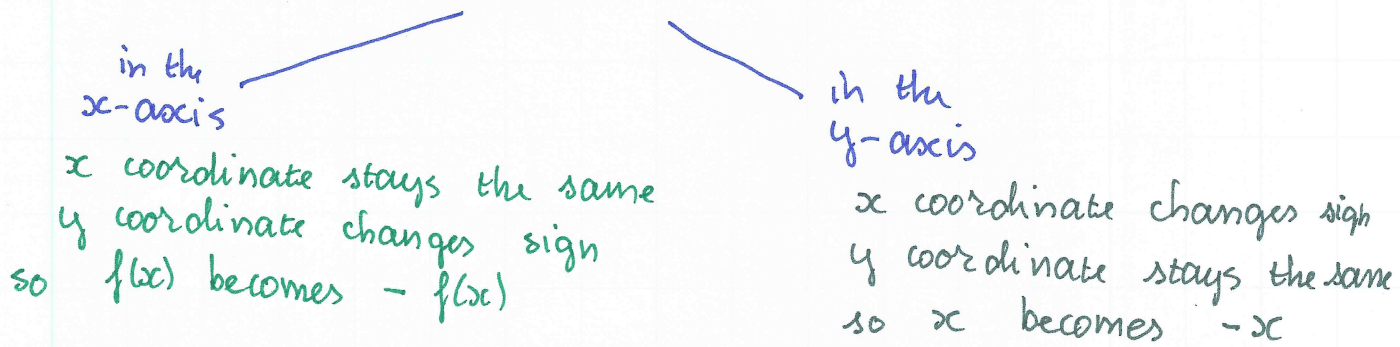 in the
x-axis
x coordinate stays the same
y coordinate changes sign
so f(x) becomes - f(x)
in the
y-axis
x coordinate changes sign
y coordinate stays the same
so x becomes -x